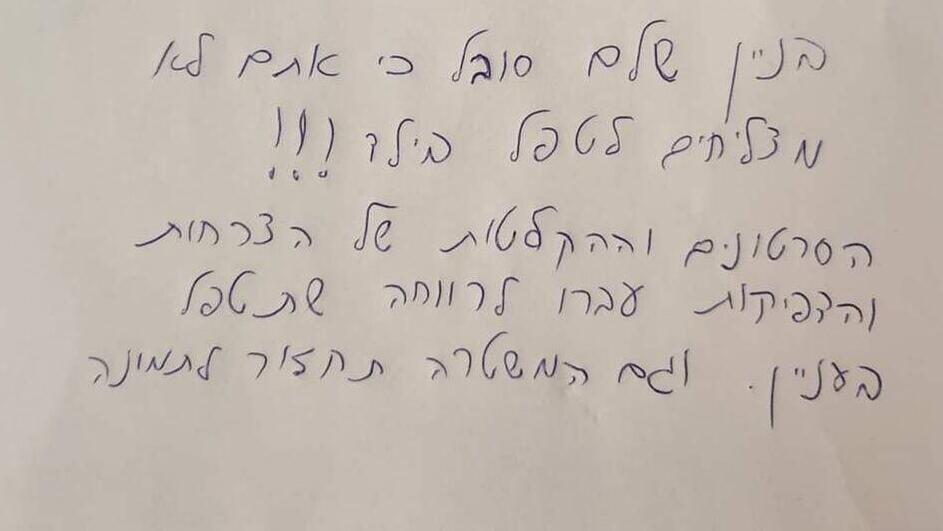 בניין שלם סובל כי אתם לא
מצליחים לטפל בילד !!!
הסרטונים וההקלטות של הצרחות
והדפיקות עברו לרווחה שתטפל
בעניין. וגם המשטרה תחזור לתמונה